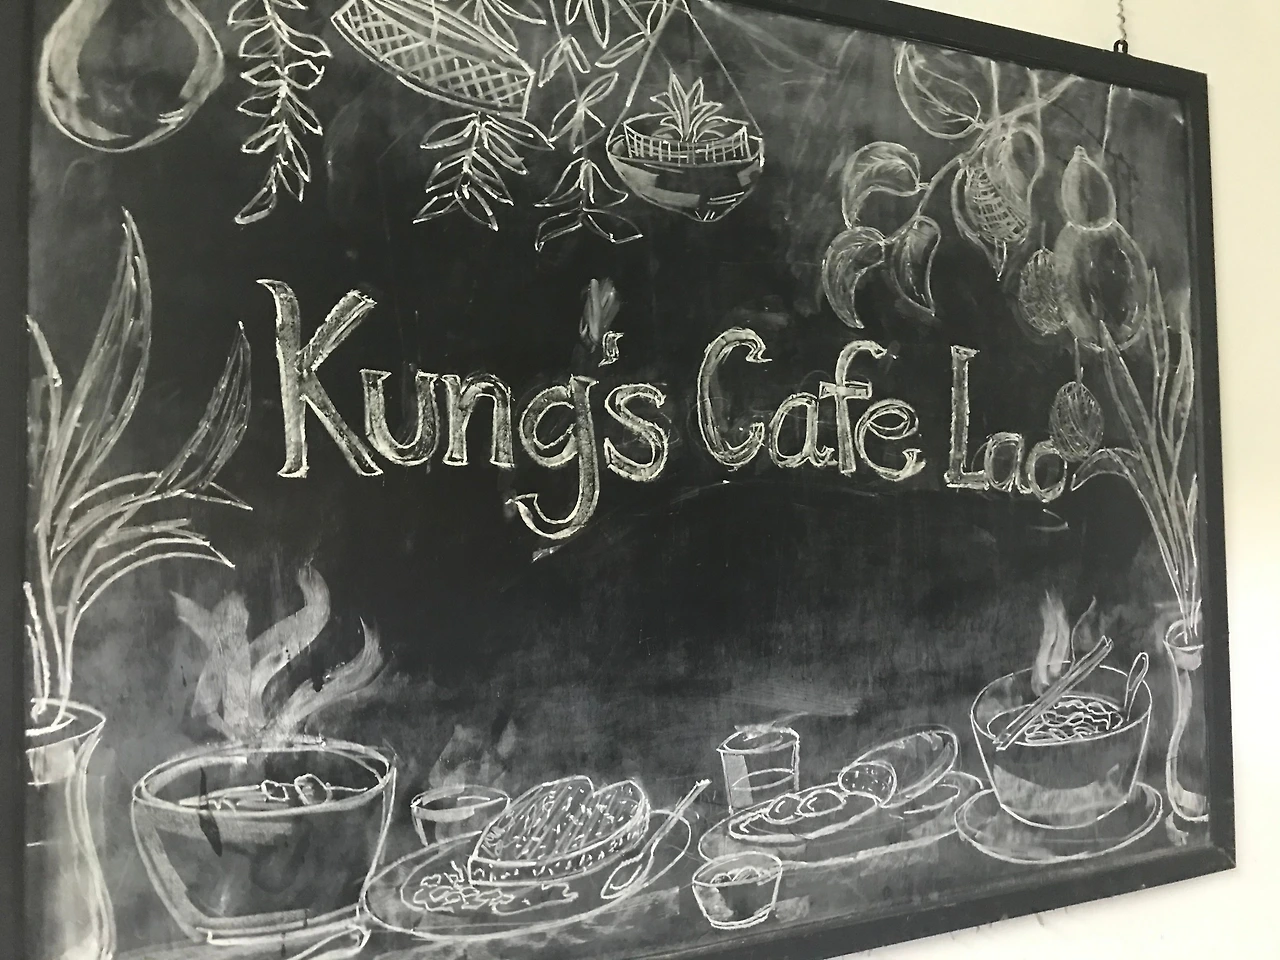 Kung's Cafe Lao